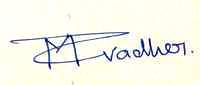 M Vadher.